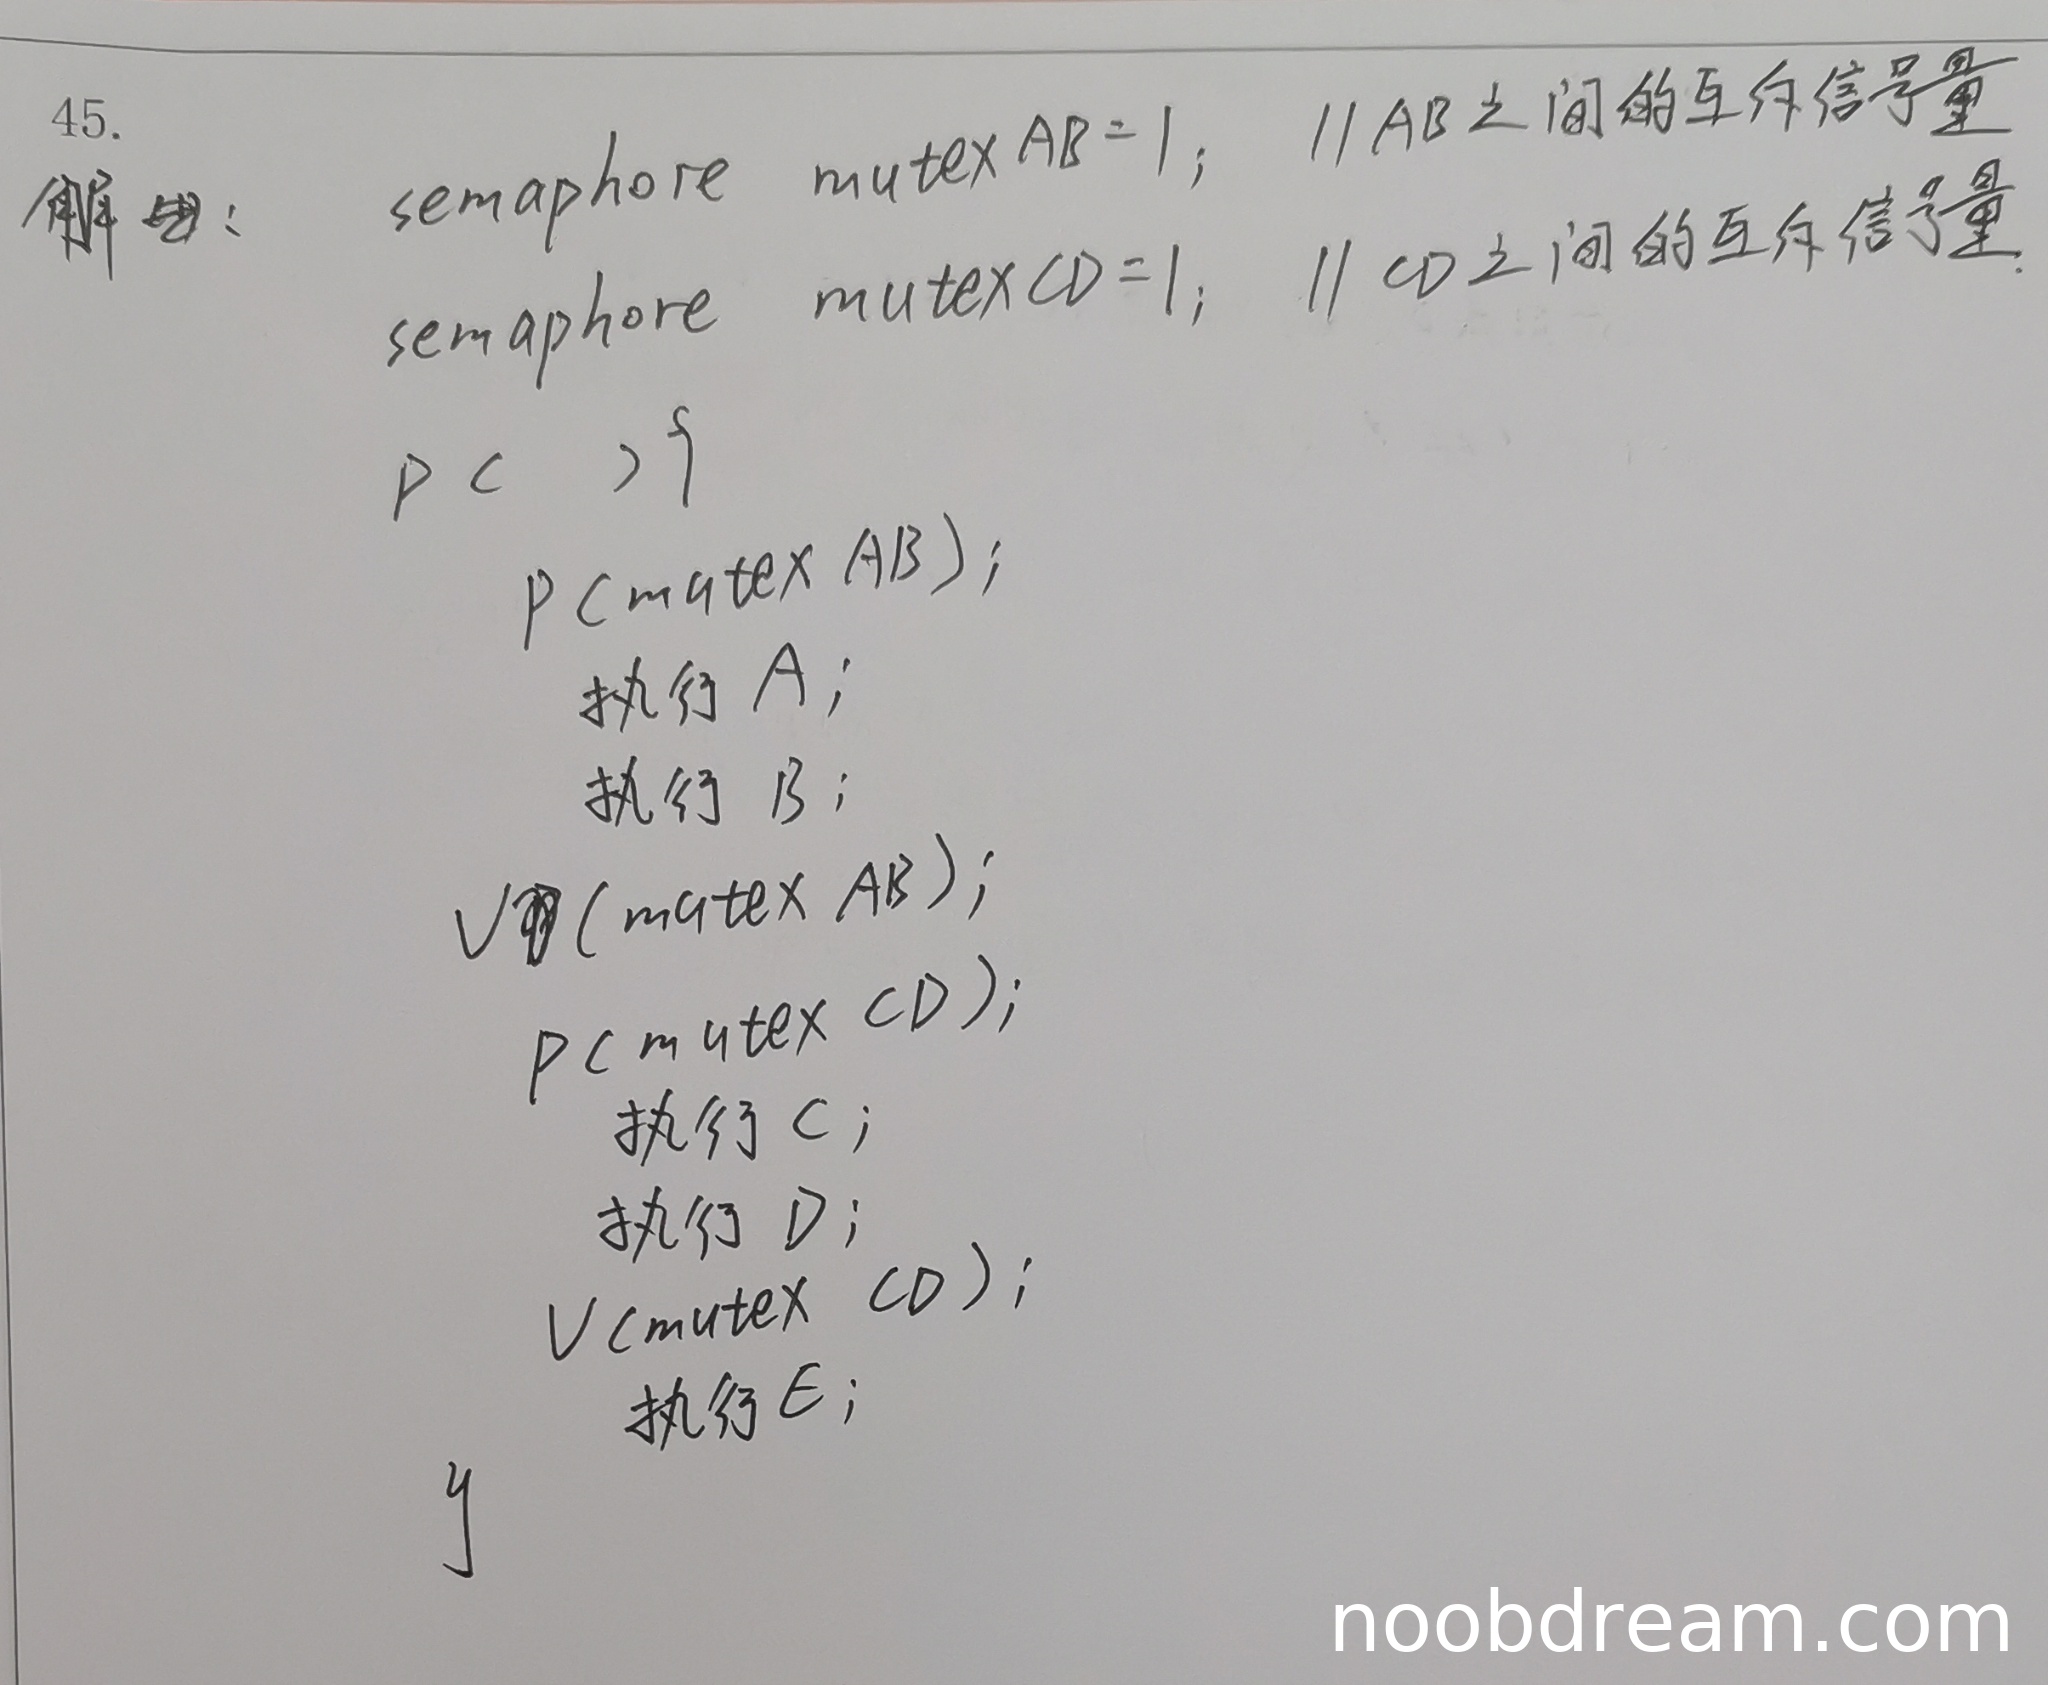 45.
解: semaphore mutexAB=1; //AB之间的互斥信号量
semaphore mutexCD=1; //CD之间的互斥信号量.
P( ){
P(mutexAB);
执行A;
执行B;
V(mutexAB);
P(mutexCD);
执行C;
执行D;
V(mutexCD);
执行E;
}
noobdream.com